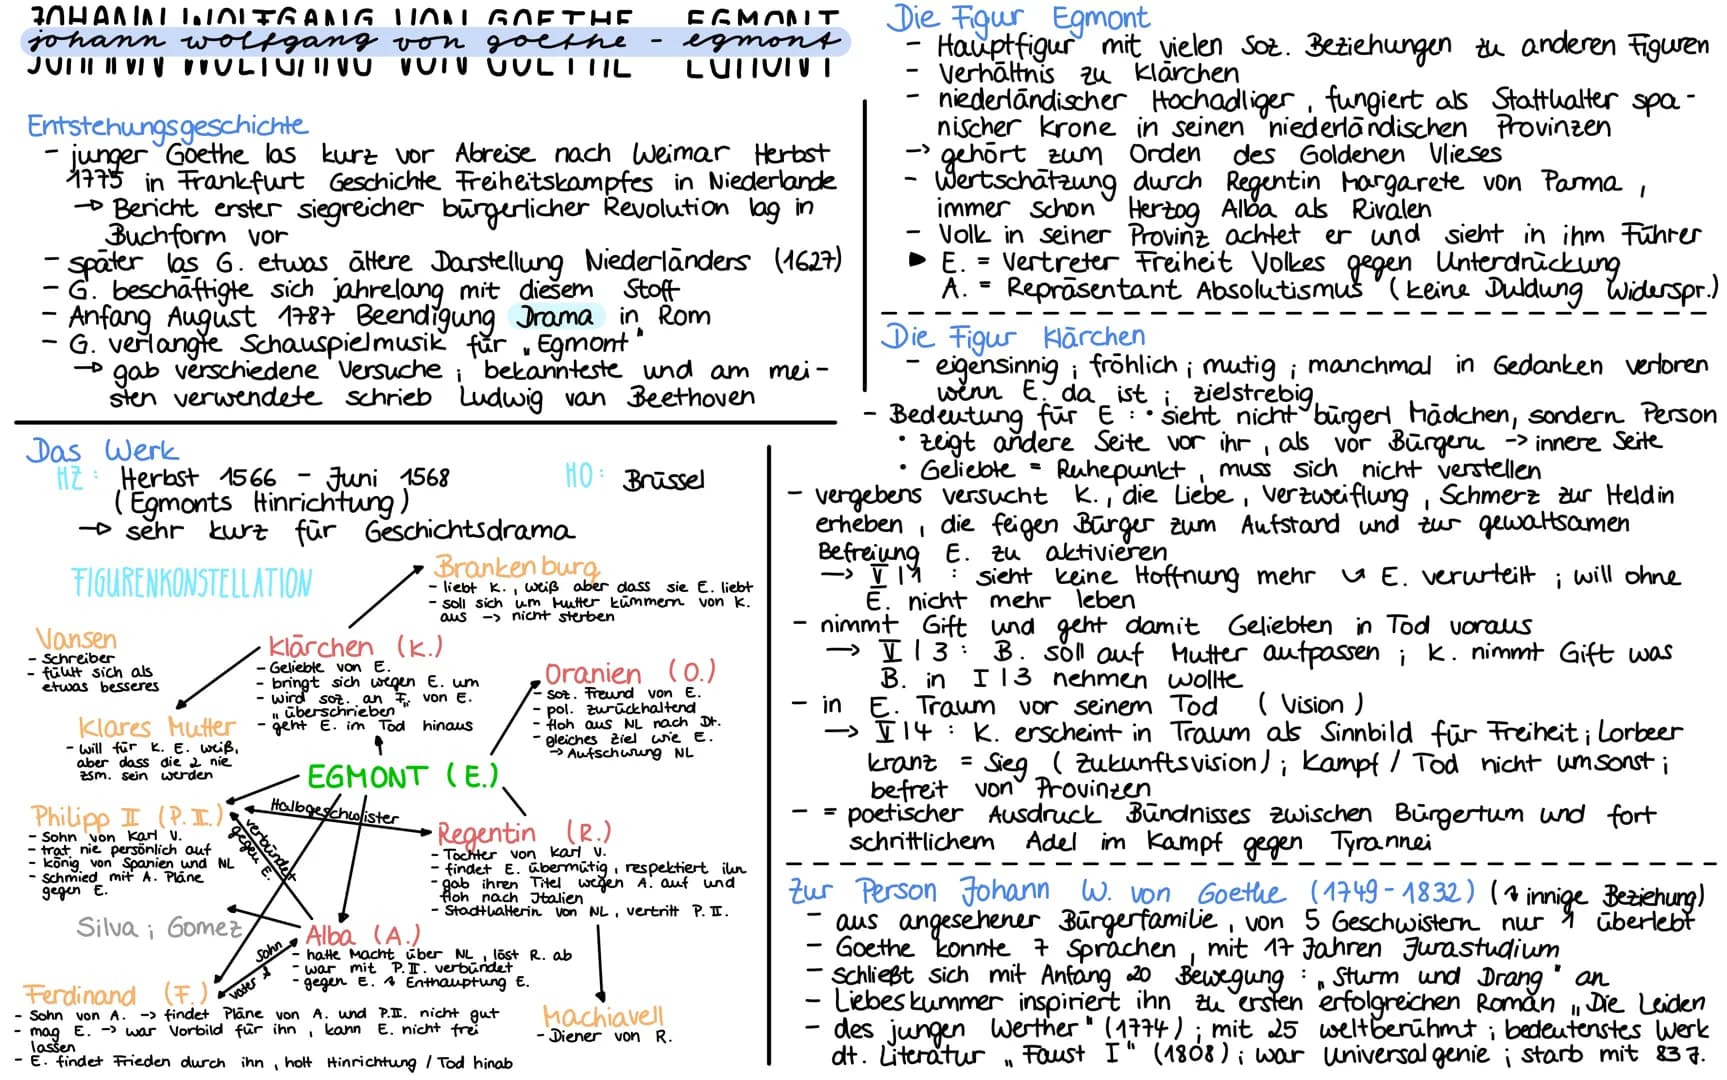 JOHANN WOLFGANG VON GOETHE EGMONT
johann wolfgang von goethe - egmont
JOHANN WOLFGANG VON GOETHE EGMONT
Entstehungsgeschichte
- junger Goethe las kurz vor Abreise nach Weimar Herbst
1775 in Frankfurt Geschichte Freiheitskampfes in Niederlande
→ Bericht erster siegreicher bürgerlicher Revolution lag in
Buchform vor
- später las G. etwas ältere Darstellung Niederländers (1627)
- G. beschäftigte sich jahrelang mit diesem Stoff
- Anfang August 1787 Beendigung Drama in Rom
- G. verlangte Schauspielmusik für „Egmont"
→ gab verschiedene Versuche ; bekannteste und am mei-
sten verwendete schrieb Ludwig van Beethoven
Das Werk
HZ: Herbst 1566 - Juni 1568 HO: Brüssel
(Egmonts Hinrichtung)
→ sehr kurz für Geschichtsdrama
FIGURENKONSTELLATION
Brankenburg
- liebt K., weiß aber dass sie E. liebt
- soll sich um Mutter kümmern von K.
aus -> nicht sterben
Vansen
- Schreiber
- fühlt sich als
etwas besseres
Klärchen (K.)
- Geliebte von E.
- bringt sich wegen E. um
- wird soz. an F. von E.
„überschrieben"
- geht E. im Tod hinaus
Oranien (O.)
- soz. Freund von E.
- pol. zurückhaltend
- floh aus NL nach Dt.
- gleiches Ziel wie E.
-> Aufschwung NL
Klares Mutter
- will für K. E. weiß,
aber dass die 2 nie
zsm. sein werden
EGMONT (E.)
Philipp II (P.II.)
- Sohn von Karl V.
- trat nie persönlich auf
- König von Spanien und NL
- schmied mit A. Pläne
gegen E.
Halbgeschwister
verbündet
gegen E.
Regentin (R.)
- Tochter von Karl V.
- findet E. übermütig, respektiert ihn
- gab ihren Titel wegen A. auf und
floh nach Italien
- Stadthalterin von NL, vertritt P.II.
Silva ; Gomez
Alba (A.)
- hatte Macht über NL, löst R. ab
- war mit P.II. verbündet
- gegen E. Enthauptung E.
Sohn
Vater
Ferdinand (F.)
- Sohn von A. -> findet Pläne von A. und P.II. nicht gut
- mag E. -> war Vorbild für ihn, kann E. nicht frei
lassen
- E. findet Frieden durch ihn, holt Hinrichtung / Tod hinab
Machiavell
- Diener von R.
Die Figur Egmont
- Hauptfigur mit vielen soz. Beziehungen zu anderen Figuren
- Verhältnis zu Klärchen
- niederländischer Hochadliger, fungiert als Statthalter spa-
nischer Krone in seinen niederländischen Provinzen
-> gehört zum Orden des Goldenen Vlieses
- Wertschätzung durch Regentin Margarete von Parma,
immer schon Herzog Alba als Rivalen
- Volk in seiner Provinz achtet er und sieht in ihm Führer
▶ E. = Vertreter Freiheit Volkes gegen Unterdrückung
A. = Repräsentant Absolutismus (keine Duldung Widerspr.)
Die Figur Klärchen
- eigensinnig ; fröhlich ; mutig ; manchmal in Gedanken verloren
wenn E. da ist ; zielstrebig
- Bedeutung für E : • sieht nicht bürgerl Mädchen, sondern Person
• zeigt andere Seite vor ihr, als vor Bürgern -> innere Seite
• Geliebte = Ruhepunkt, muss sich nicht verstellen
- vergebens versucht K., die Liebe, Verzweiflung, Schmerz zur Heldin
erheben, die feigen Bürger zum Aufstand und zur gewaltsamen
Befreiung E. zu aktivieren
-> V|1 : sieht keine Hoffnung mehr E. verurteilt ; will ohne
E. nicht mehr leben
- nimmt Gift und geht damit Geliebten in Tod voraus
-> V|3 : B. soll auf Mutter aufpassen ; K. nimmt Gift was
B. in I|3 nehmen wollte
- in E. Traum vor seinem Tod (Vision)
-> V|4 : K. erscheint in Traum als Sinnbild für Freiheit ; Lorbeer
kranz = Sieg (Zukunftsvision) ; Kampf / Tod nicht umsonst ;
befreit von Provinzen
- = poetischer Ausdruck Bündnisses zwischen Bürgertum und fort
schrittlichem Adel im Kampf gegen Tyrannei
Zur Person Johann W. von Goethe (1749-1832) (innige Beziehung)
- aus angesehener Bürgerfamilie, von 5 Geschwistern nur 1 überlebt
- Goethe konnte 7 Sprachen, mit 17 Jahren Jurastudium
- schließt sich mit Anfang 20 Bewegung : „Sturm und Drang" an
- Liebeskummer inspiriert ihn zu ersten erfolgreichen Roman „Die Leiden
- des jungen Werther" (1774) ; mit 25 weltberühmt ; bedeutenstes Werk
dt. Literatur „Faust I" (1808) ; war Universalgenie ; starb mit 83 J.